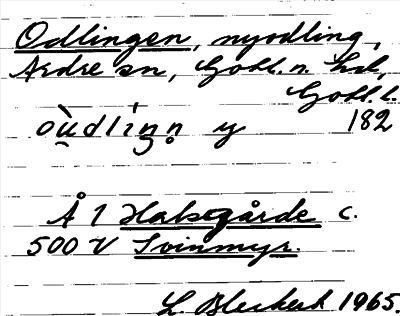 Odlingen, nyodling,
Ardre sn, Gotl. n. hd,
Gotl. l.
182
Å 1 Halsegårde c.
500 V Svinmyr.
L. Bleckert 1965.